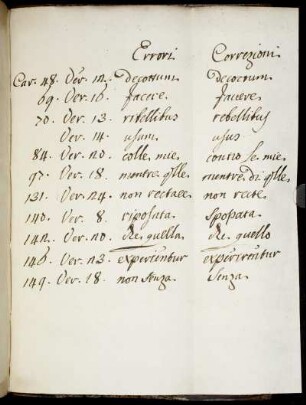 Errori. Correzioni.
Car. 48. Ver. 14. decotum. decoctum.
69. Ver. 16. facere. facere.
70. Ver. 13. ribellibus rebellibus
Ver. 14. usum. usus
84. Ver. 20. colle. mie. se. mie.
97. Ver. 18. mentre. qlle. di. qlle.
131. Ver. 24. non rectae. non recte.
140. Ver. 8. riposata. Sposata.
142. Ver. 20. Re. quella. Re. quello
146. Ver. 23. experientur experirentur
149. Ver. 18. non senza. Senza.